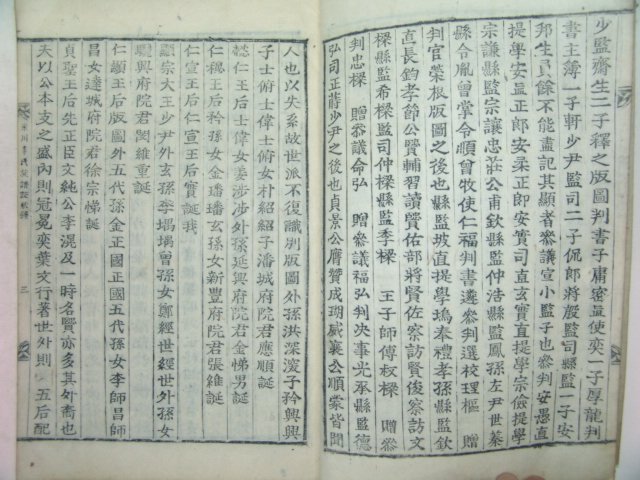 少監齋生二子釋之版圖判書子庸密直使奕一子厚龍判
書主簿一子軒少尹監司二子侃郎將殷監司縣監一子安
邦生員餘不能盡記其顯者叅議宣小監子也叅判安愚直
提學安直正郎安柔正郎安實司直玄實直提學宗儉提學
宗謙縣監宗讓忠莊公甫欽縣監仲浩縣監鳳孫左尹世蓁
縣令胤曾掌令順曾牧使仁福判書邊叅判選校理樞 贈
判官榮根版圖之後也縣監坡直提學塢奉禮孝孫縣監欽
直長鈞孝節公賢輔習讀賢佑部將賢佐察訪賢俊察訪文
樑縣監希樑監司仲樑縣監季樑 王子師傅叔樑 贈叅
判忠樑 贈叅議命弘 贈叅議福弘判決事光承縣監德
弘司正蒔少尹之後也貞景公膺贊成瑚威襄公順蒙皆聞
人也以失系故世派不復識別版圖外孫洪深濙子矜興興
子士俯士偉士俯女朴紹紹子潘城府院君應順誕
懿仁王后士偉女姜涉涉外孫延興府院君金悌男誕
仁穆王后矜孫女金璠璠玄孫女新豐府院君張維誕
仁宣王后王后實誕我
顯宗大王少尹外玄孫李堣堣曾孫女鄭經世經世外孫女
驪興府院君閔維重誕
仁顯王后版圖外五代孫金正國正國五代孫女李師昌師
昌女達城府院君徐宗悌誕
貞聖王后先正臣文純公李滉及一時名賢亦多其外裔也
夫以公本支之盛內則冠冕奕葉文行著世外則 五后配
三